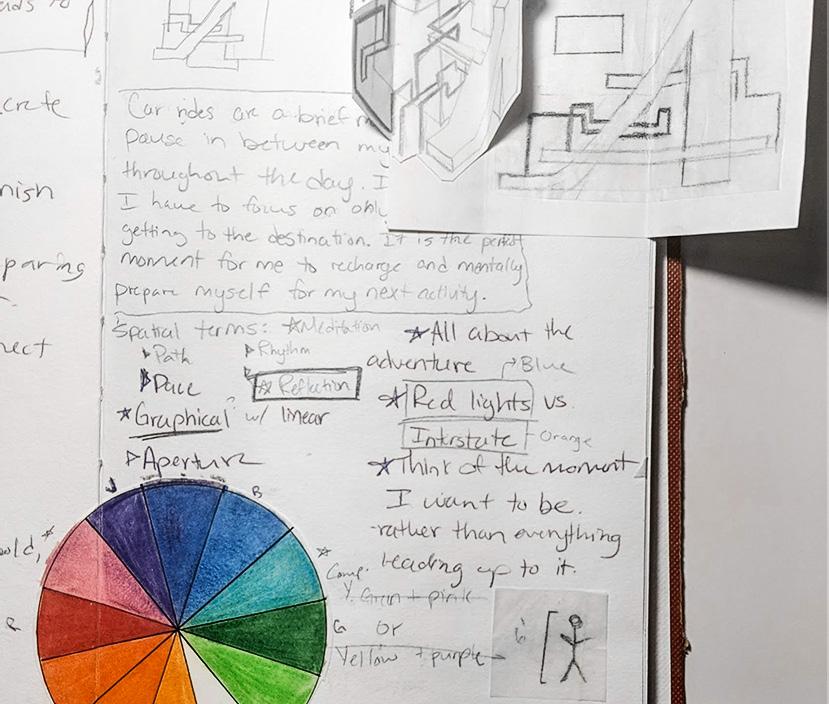 crete
nish
paring
nect
Car rides are a brief
pause in between my
throughout the day. I
I have to focus on only
getting to the destination. It is the perfect
moment for me to recharge and mentally
prepare myself for my next activity.
Spatial terms: Meditation
Path
Rhythm
Pace
Reflection
Graphical w/ linear
Aperture
All about the
adventure
Blue
Red lights vs.
Intrstate Orange
Think of the moment
I want to be.
rather than everything
leading up to it.
B
Comp.
Y. Green + pink
G or
Yellow + purple
R
old,
6'